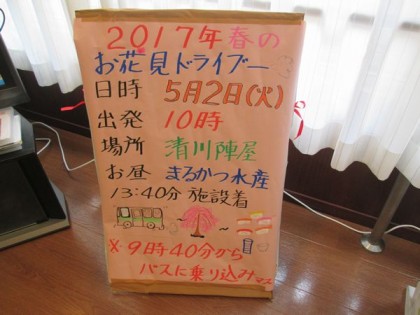 2017年 春の
お花見ドライブー
日時 5月2日(火)
出発 10時
場所 清川陣屋
お昼 まるかつ水産
13:40分 施設着
※9時40分から
バスに乗り込みます